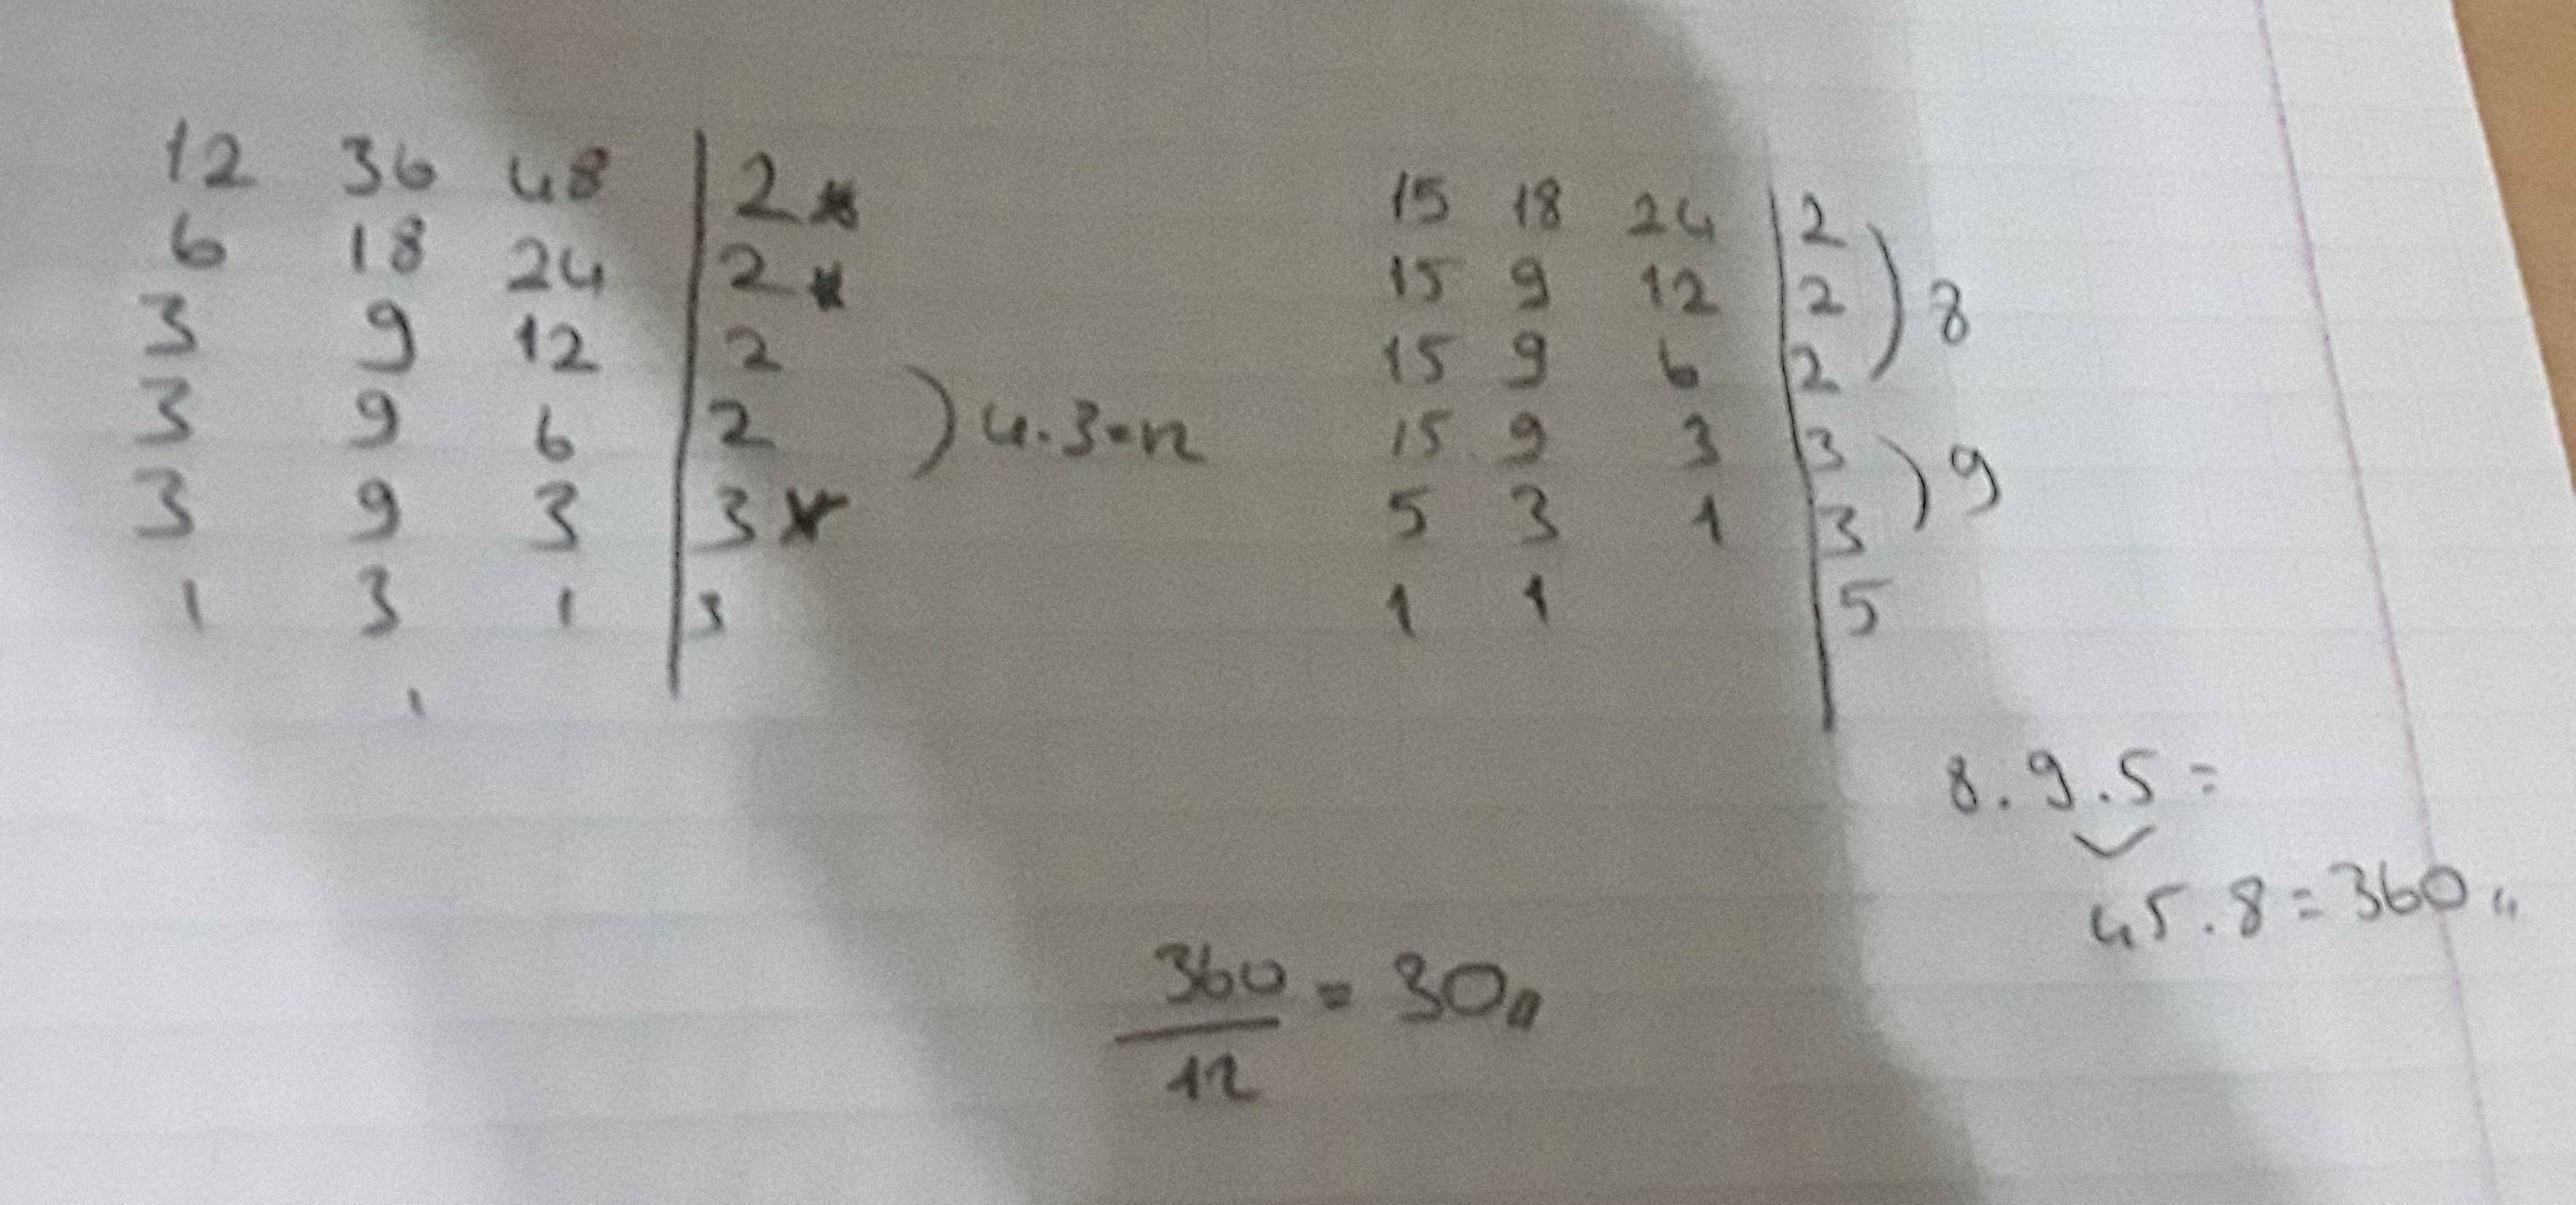 12 36 48 | 2*
6 18 24 | 2*
3 9 12 | 2
3 9 6 | 2
3 9 3 | 3*
1 3 1 | 3
1
) 4.3=12
15 18 24 | 2
15 9 12 | 2
15 9 6 | 2
15 9 3 | 3
5 3 1 | 3
1 1 | 5
) 8
) 9
8.9.5=
45.8=360,,
360/12 = 30,,